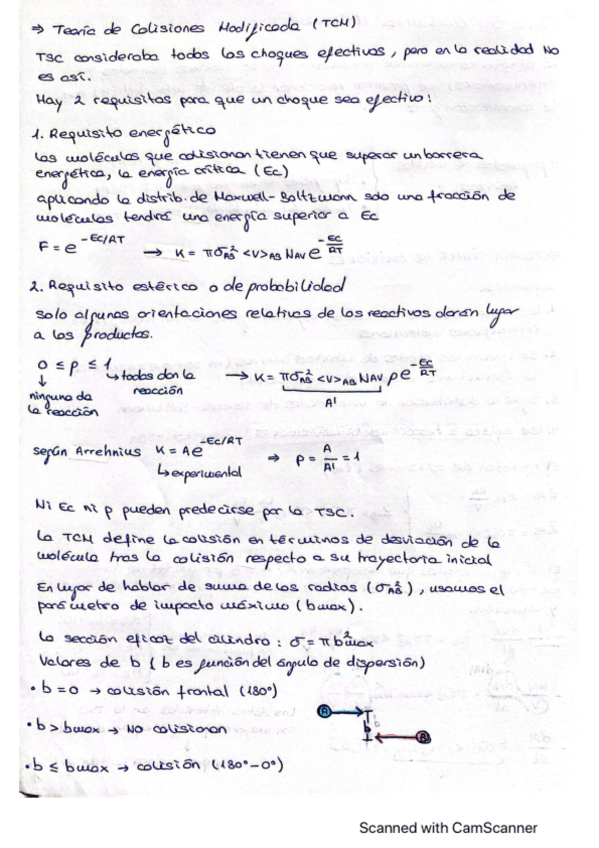 ⇒ Teoría de Colisiones Modificada (TCM)
TSC consideraba todos los choques efectivos, pero en la realidad NO
es así.
Hay 2 requisitos para que un choque sea efectivo:
1. Requisito energético
Las moléculas que colisionan tienen que superar un barrera
energética, la energía crítica (Ec)
aplicando la distrib. de Maxwell-Boltzmann solo una fracción de
moléculas tendrá una energía superior a Ec
F = e^-Ec/RT → K = πσ²AB <v>AB NAV e^-Ec/RT
2. Requisito estérico o de probabilidad
solo algunas orientaciones relativas de los reactivos darán lugar
a los productos.
0 ≤ p ≤ 1 → todos dan la reacción → K = πσ²AB <v>AB NAV p e^-Ec/RT
↓ ninguno da la reacción A'
según Arrehnius K = Ae^-Ec/RT ⇒ p = A/A' = 1
↳ experimental
Ni Ec ni p pueden predecirse por la TSC.
La TCM define la colisión en términos de desviación de la
molécula tras la colisión respecto a su trayectoria inicial
En lugar de hablar de suma de los radios (σ²AB), usamos el
parámetro de impacto máximo (bmax).
La sección eficaz del cilindro: σ = πb²max
Valores de b (b es función del ángulo de dispersión)
· b = 0 → colisión frontal (180°)
A b A
· b > bmax → NO colisionan
· b ≤ bmax → colisión (180°-0°)
Scanned with CamScanner